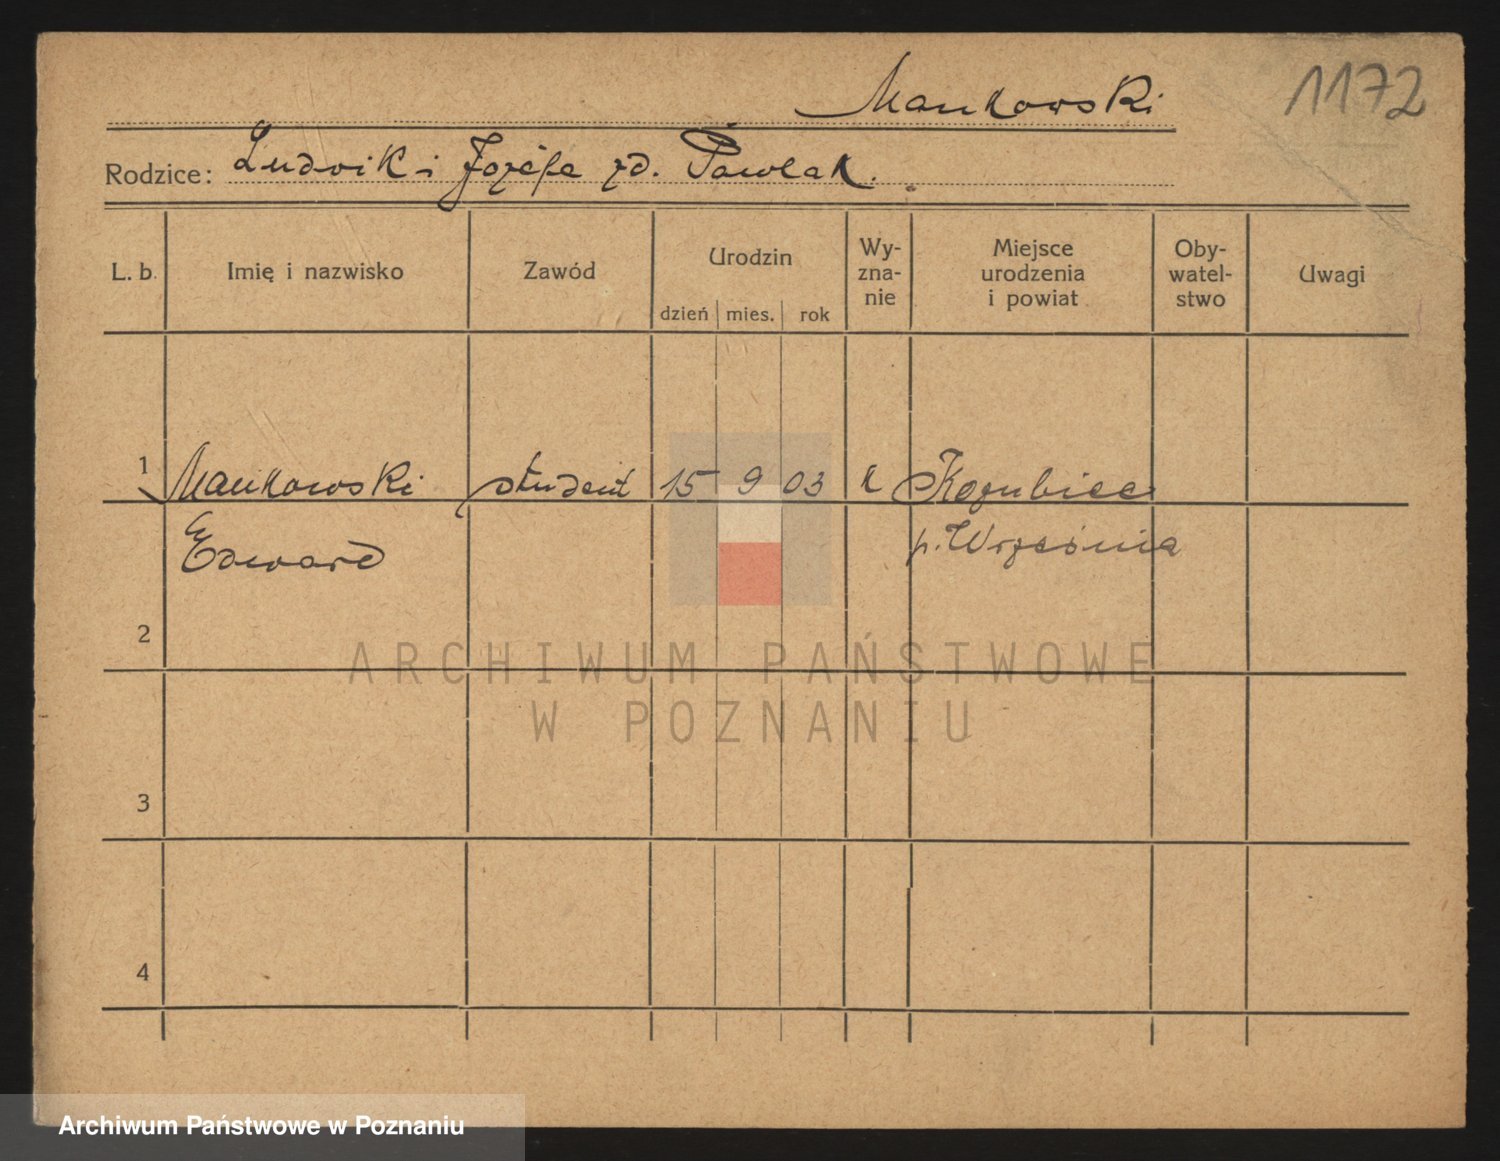 Mankowski 1172
Rodzice: Ludwik i Józefa zd. Pawlak.
L. b. Imię i nazwisko Zawód Urodzin dzień mies. rok Wy-zna-nie Miejsce urodzenia i powiat Oby-watel-stwo Uwagi
1 Mankowski student 15 9 03 k Kozubiec
Edward p. Września
2
ARCHIWUM PAŃSTWOWE
W POZNANIU
3
4
Archiwum Państwowe w Poznaniu